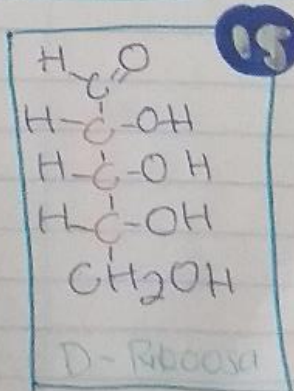 15
H O
C
H-C-OH
H-C-OH
H-C-OH
CH2OH
D-Riboosa